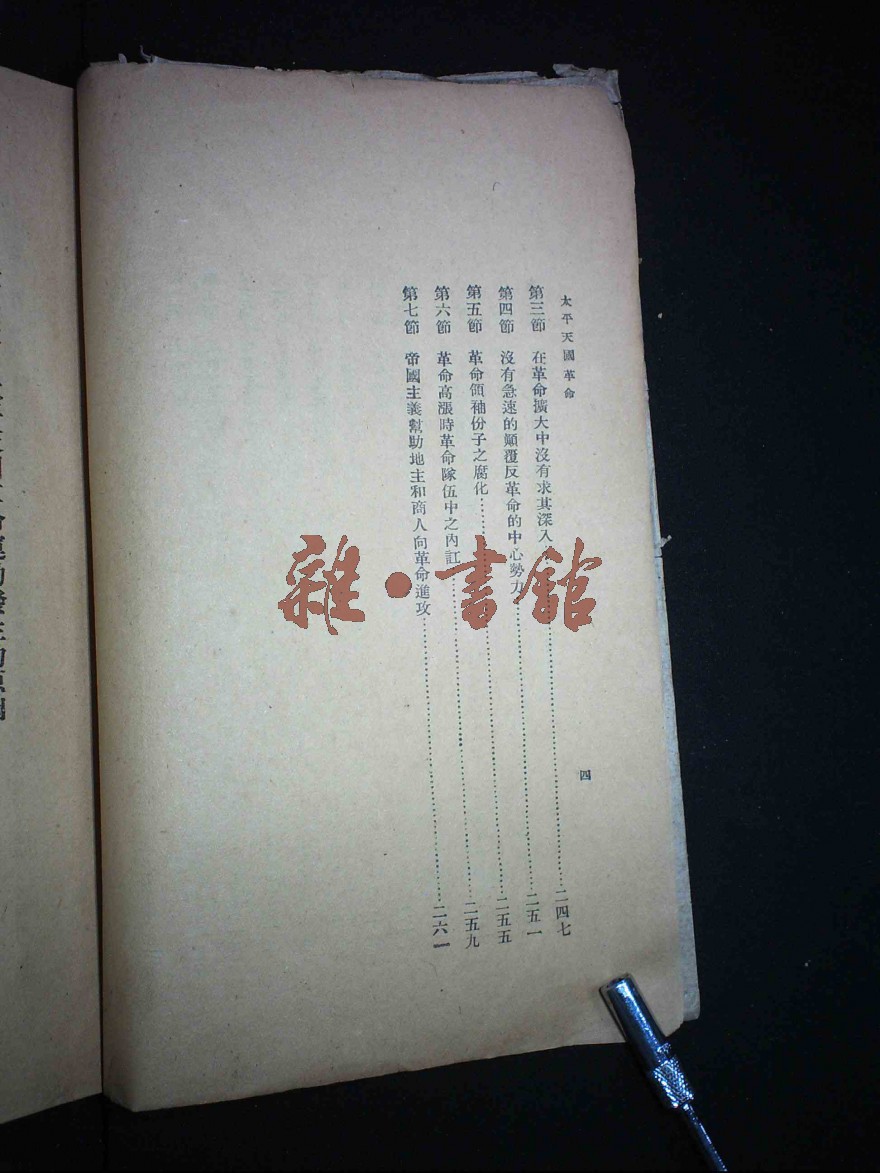 太平天國革命
四
第三節 在革命擴大中沒有求其深入……二四七
第四節 沒有急速的顛覆反革命的中心勢力……二五一
第五節 革命領袖份子之腐化……二五五
第六節 革命高漲時革命隊伍中之內訌……二五九
第七節 帝國主義幫助地主和商人向革命進攻……二六一
雜·書館